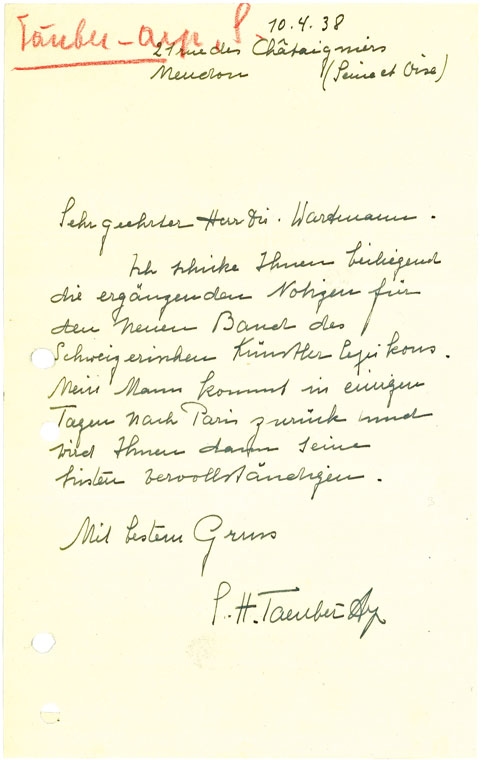 Täuber-Arp, S.
10.4.38
21 rue des Châtaigniers
Meudon (Seine et Oise)
Sehr geehrter Herr Dir. Wartmann.
Ich schicke Ihnen beiliegend
die ergänzenden Notizen für
den neuen Band des
Schweizerischen Künstler Lexikons.
Mein Mann kommt in einigen
Tagen nach Paris zurück und
wird Ihnen dann seine
Listen vervollständigen.
Mit bestem Gruss
S. H. Taeuber-Arp